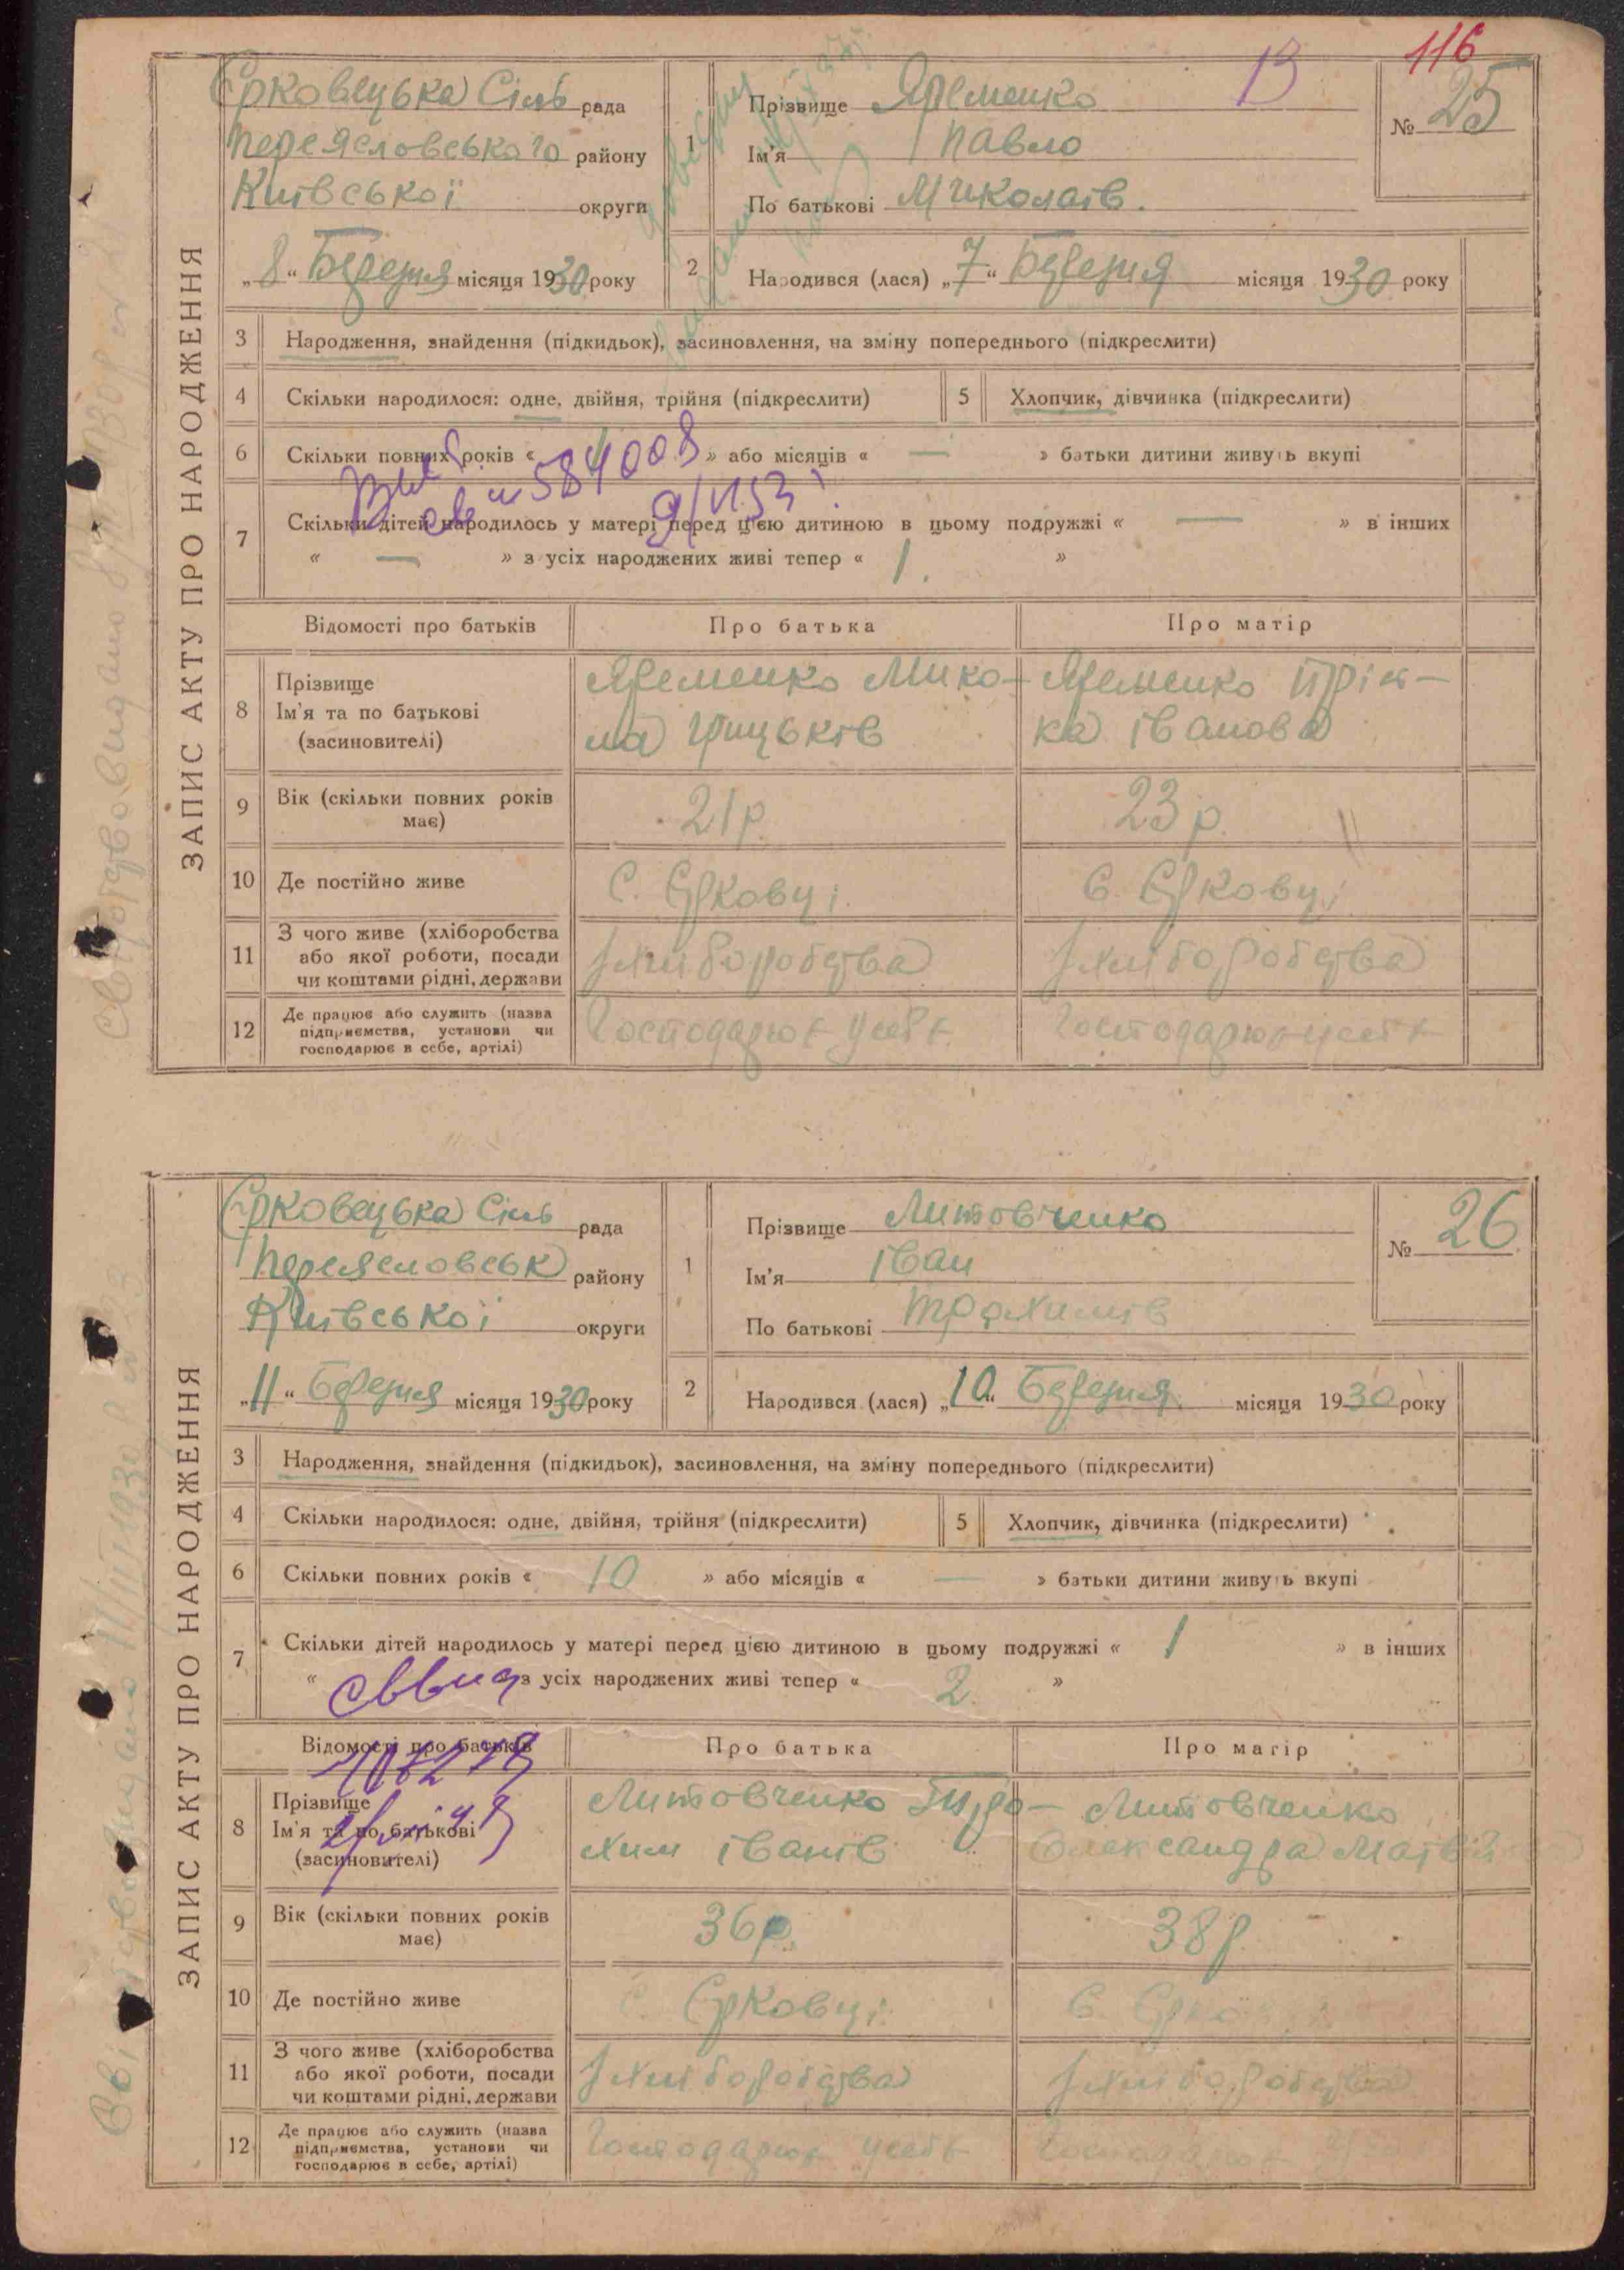 116
13
ЗАПИС АКТУ ПРО НАРОДЖЕННЯ
Єрковецька Сіль рада
Переясловського району
Київської округи
„8“ Березня місяця 1930 року
1
Прізвище Яременко
Ім'я Павло
По батькові Миколаїв.
№ 25
2
Народився (лася) „7“ Березня місяця 1930 року
3 Народження, знайдення (підкидьок), засиновлення, на зміну попереднього (підкреслити)
4 Скільки народилося: одне, двійня, трійня (підкреслити)
5 Хлопчик, дівчинка (підкреслити)
6 Скільки повних років « » або місяців « — » батьки дитини живуть вкупі
584008
7 Скільки дітей народилось у матері перед цією дитиною в цьому подружжі « — » в інших
« — » з усіх народжених живі тепер « 1. »
Відомості про батьків Про батька Про матір
8 Прізвище
Ім'я та по батькові
(засиновителі)
Яременко Мико-
ла Грицьків
Яременко Прісь-
ка Іванова
9 Вік (скільки повних років
має)
21 р.
23 р.
10 Де постійно живе
С. Єрковці.
С. Єрковці
11 З чого живе (хліборобства
або якої роботи, посади
чи коштами рідні, держави
Хліборобства
Хліборобства
12 Де працює або служить (назва
підприємства, установи чи
господарює в себе, артілі)
ЗАПИС АКТУ ПРО НАРОДЖЕННЯ
Єрковецька Сіль рада
Переясловськ району
Київської округи
„11“ Березня місяця 1930 року
1
Прізвище Литовченко
Ім'я Іван
По батькові Трохимів
№ 26
2
Народився (лася) „10“ Березня місяця 1930 року
3 Народження, знайдення (підкидьок), засиновлення, на зміну попереднього (підкреслити)
4 Скільки народилося: одне, двійня, трійня (підкреслити)
5 Хлопчик, дівчинка (підкреслити)
6 Скільки повних років « 10 » або місяців « — » батьки дитини живуть вкупі
7 Скільки дітей народилось у матері перед цією дитиною в цьому подружжі « 1 » в інших
« з усіх народжених живі тепер « 2 »
Відомості про батьків Про батька Про матір
8 Прізвище
Ім'я та по батькові
(засиновителі)
Литовченко Тро-
хим Іванів
Литовченко
Олександра Матвій
9 Вік (скільки повних років
має)
36 р.
38 р.
10 Де постійно живе
С. Єрковці
С.
11 З чого живе (хліборобства
або якої роботи, посади
чи коштами рідні, держави
Хліборобства
Хліборобства
12 Де працює або служить (назва
підприємства, установи чи
господарює в себе, артілі)